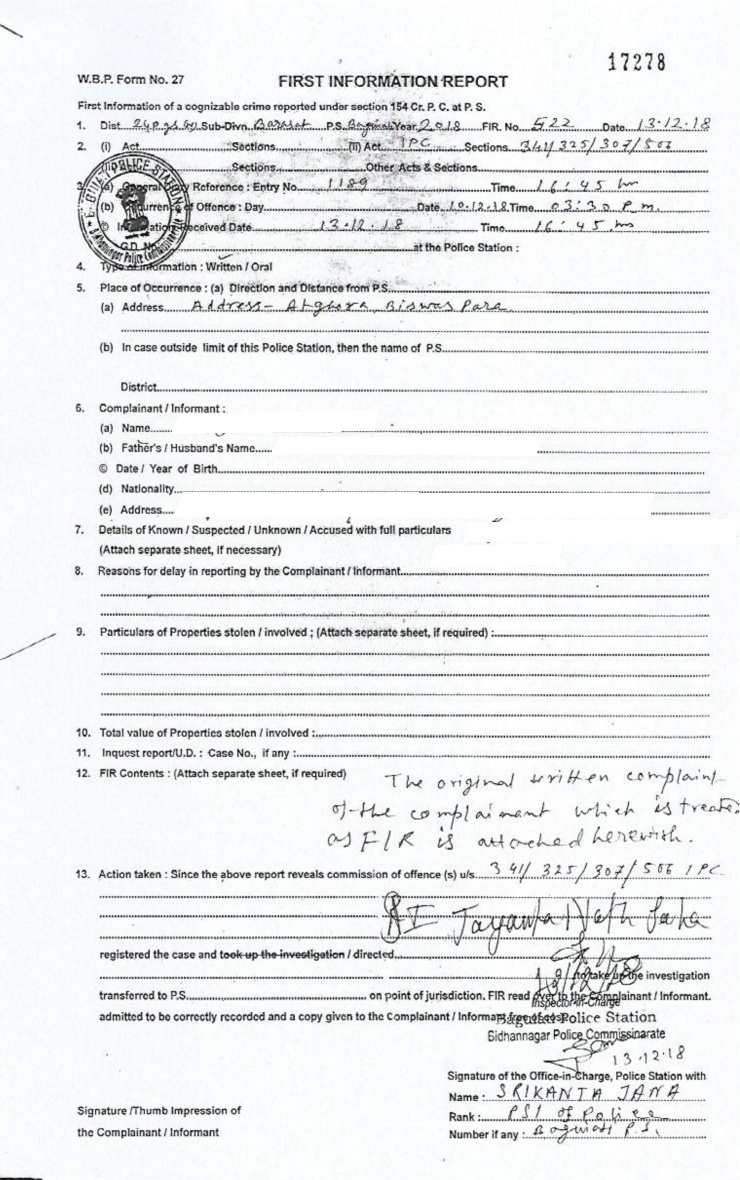 17278
W.B.P. Form No. 27
FIRST INFORMATION REPORT
First Information of a cognizable crime reported under section 154 Cr. P. C. at P. S.
1. Dist. 24 P.gs (N) Sub-Divn. Barasat P.S. Baguiati Year 2018 FIR. No. 522 Date 13.12.18
2. (i) Act Sections (ii) Act IPC Sections 341/325/307/506
Sections Other Acts & Sections
3. (a) General Diary Reference : Entry No. 1189 Time 16:45 hr
(b) Occurrence of Offence : Day Date 10.12.18 Time 03:30 P.m.
© Information Received Date 13.12.18 Time 16:45 hr
G.D. No. at the Police Station :
4. Type of Information : Written / Oral
5. Place of Occurrence : (a) Direction and Distance from P.S.
(a) Address Address - Atghora, Biswas Para
(b) In case outside limit of this Police Station, then the name of P.S.
District
6. Complainant / Informant :
(a) Name
(b) Father's / Husband's Name
© Date / Year of Birth
(d) Nationality
(e) Address
7. Details of Known / Suspected / Unknown / Accused with full particulars
(Attach separate sheet, if necessary)
8. Reasons for delay in reporting by the Complainant / Informant
9. Particulars of Properties stolen / involved ; (Attach separate sheet, if required) :
10. Total value of Properties stolen / involved :
11. Inquest report/U.D. : Case No., if any :
12. FIR Contents : (Attach separate sheet, if required) The original written complaint
of the complainant which is treated
as FIR is attached herewith.
13. Action taken : Since the above report reveals commission of offence (s) u/s 341/325/307/506 IPC
SI Jayanta Nath Saha
registered the case and took up the investigation / directed
to take up the investigation
transferred to P.S. on point of jurisdiction. FIR read over to the Complainant / Informant.
Inspector-in-Charge
admitted to be correctly recorded and a copy given to the Complainant / Informant free of cost.
Baguiati Police Station
Bidhannagar Police Commissinarate
13.12.18
Signature of the Office-in-Charge, Police Station with
Name : SRIKANTA JANA
Signature /Thumb Impression of
Rank : PSI of Police
the Complainant / Informant
Number if any : Baguiati P.S.